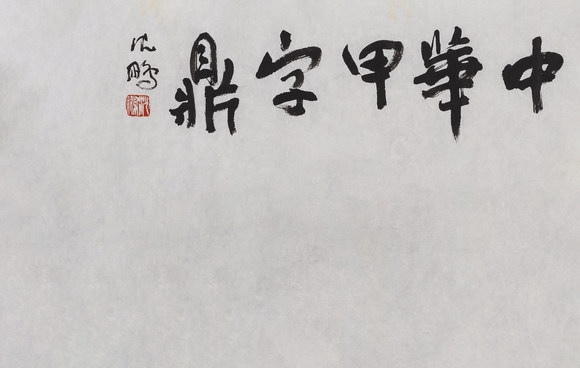 中華甲字鼎
沈鹏